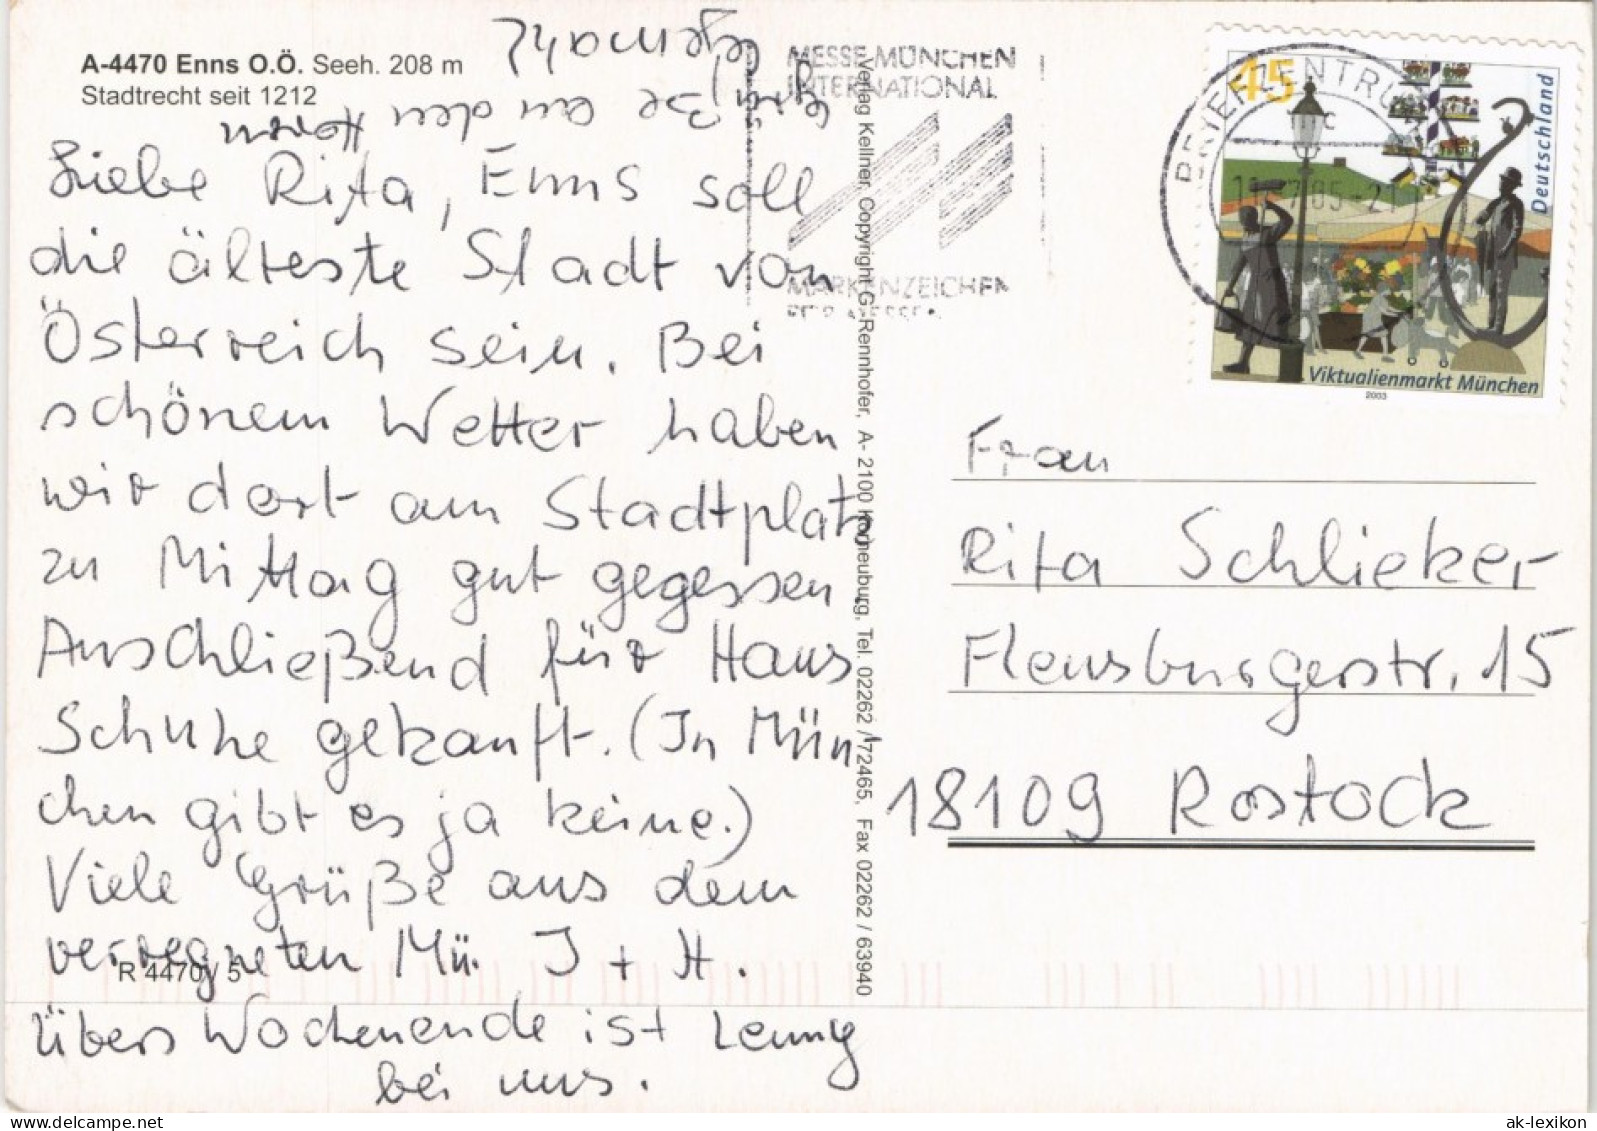 A-4470 Enns O.Ö. Seeh. 208 m
Stadtrecht seit 1212
Liebe Rita, Enns soll
die älteste Stadt von
Österreich sein. Bei
schönem Wetter haben
wir dort am Stadtplatz
zu Mittag gut gegessen.
Anschließend für Hans
Schuhe gekauft. (In Mün
chen gibt es ja keine.)
Viele Grüße aus dem
verregneten Mü. J + H.
R 4470 / 5
Übers Wochenende ist Lenny
bei uns.
Grüße an den
Verlag Kellner, Copyright G. Rennhofer, A- 2100 Korneuburg, Tel. 02262 / 72465, Fax 02262 / 63940
MESSE MÜNCHEN
INTERNATIONAL
MARKENZEICHEN
BRIEFZENTRUM
45
Deutschland
Viktualienmarkt München
2003
Frau
Rita Schlieker
Flensburgerstr. 15
18109 Rostock
ak-lexikon